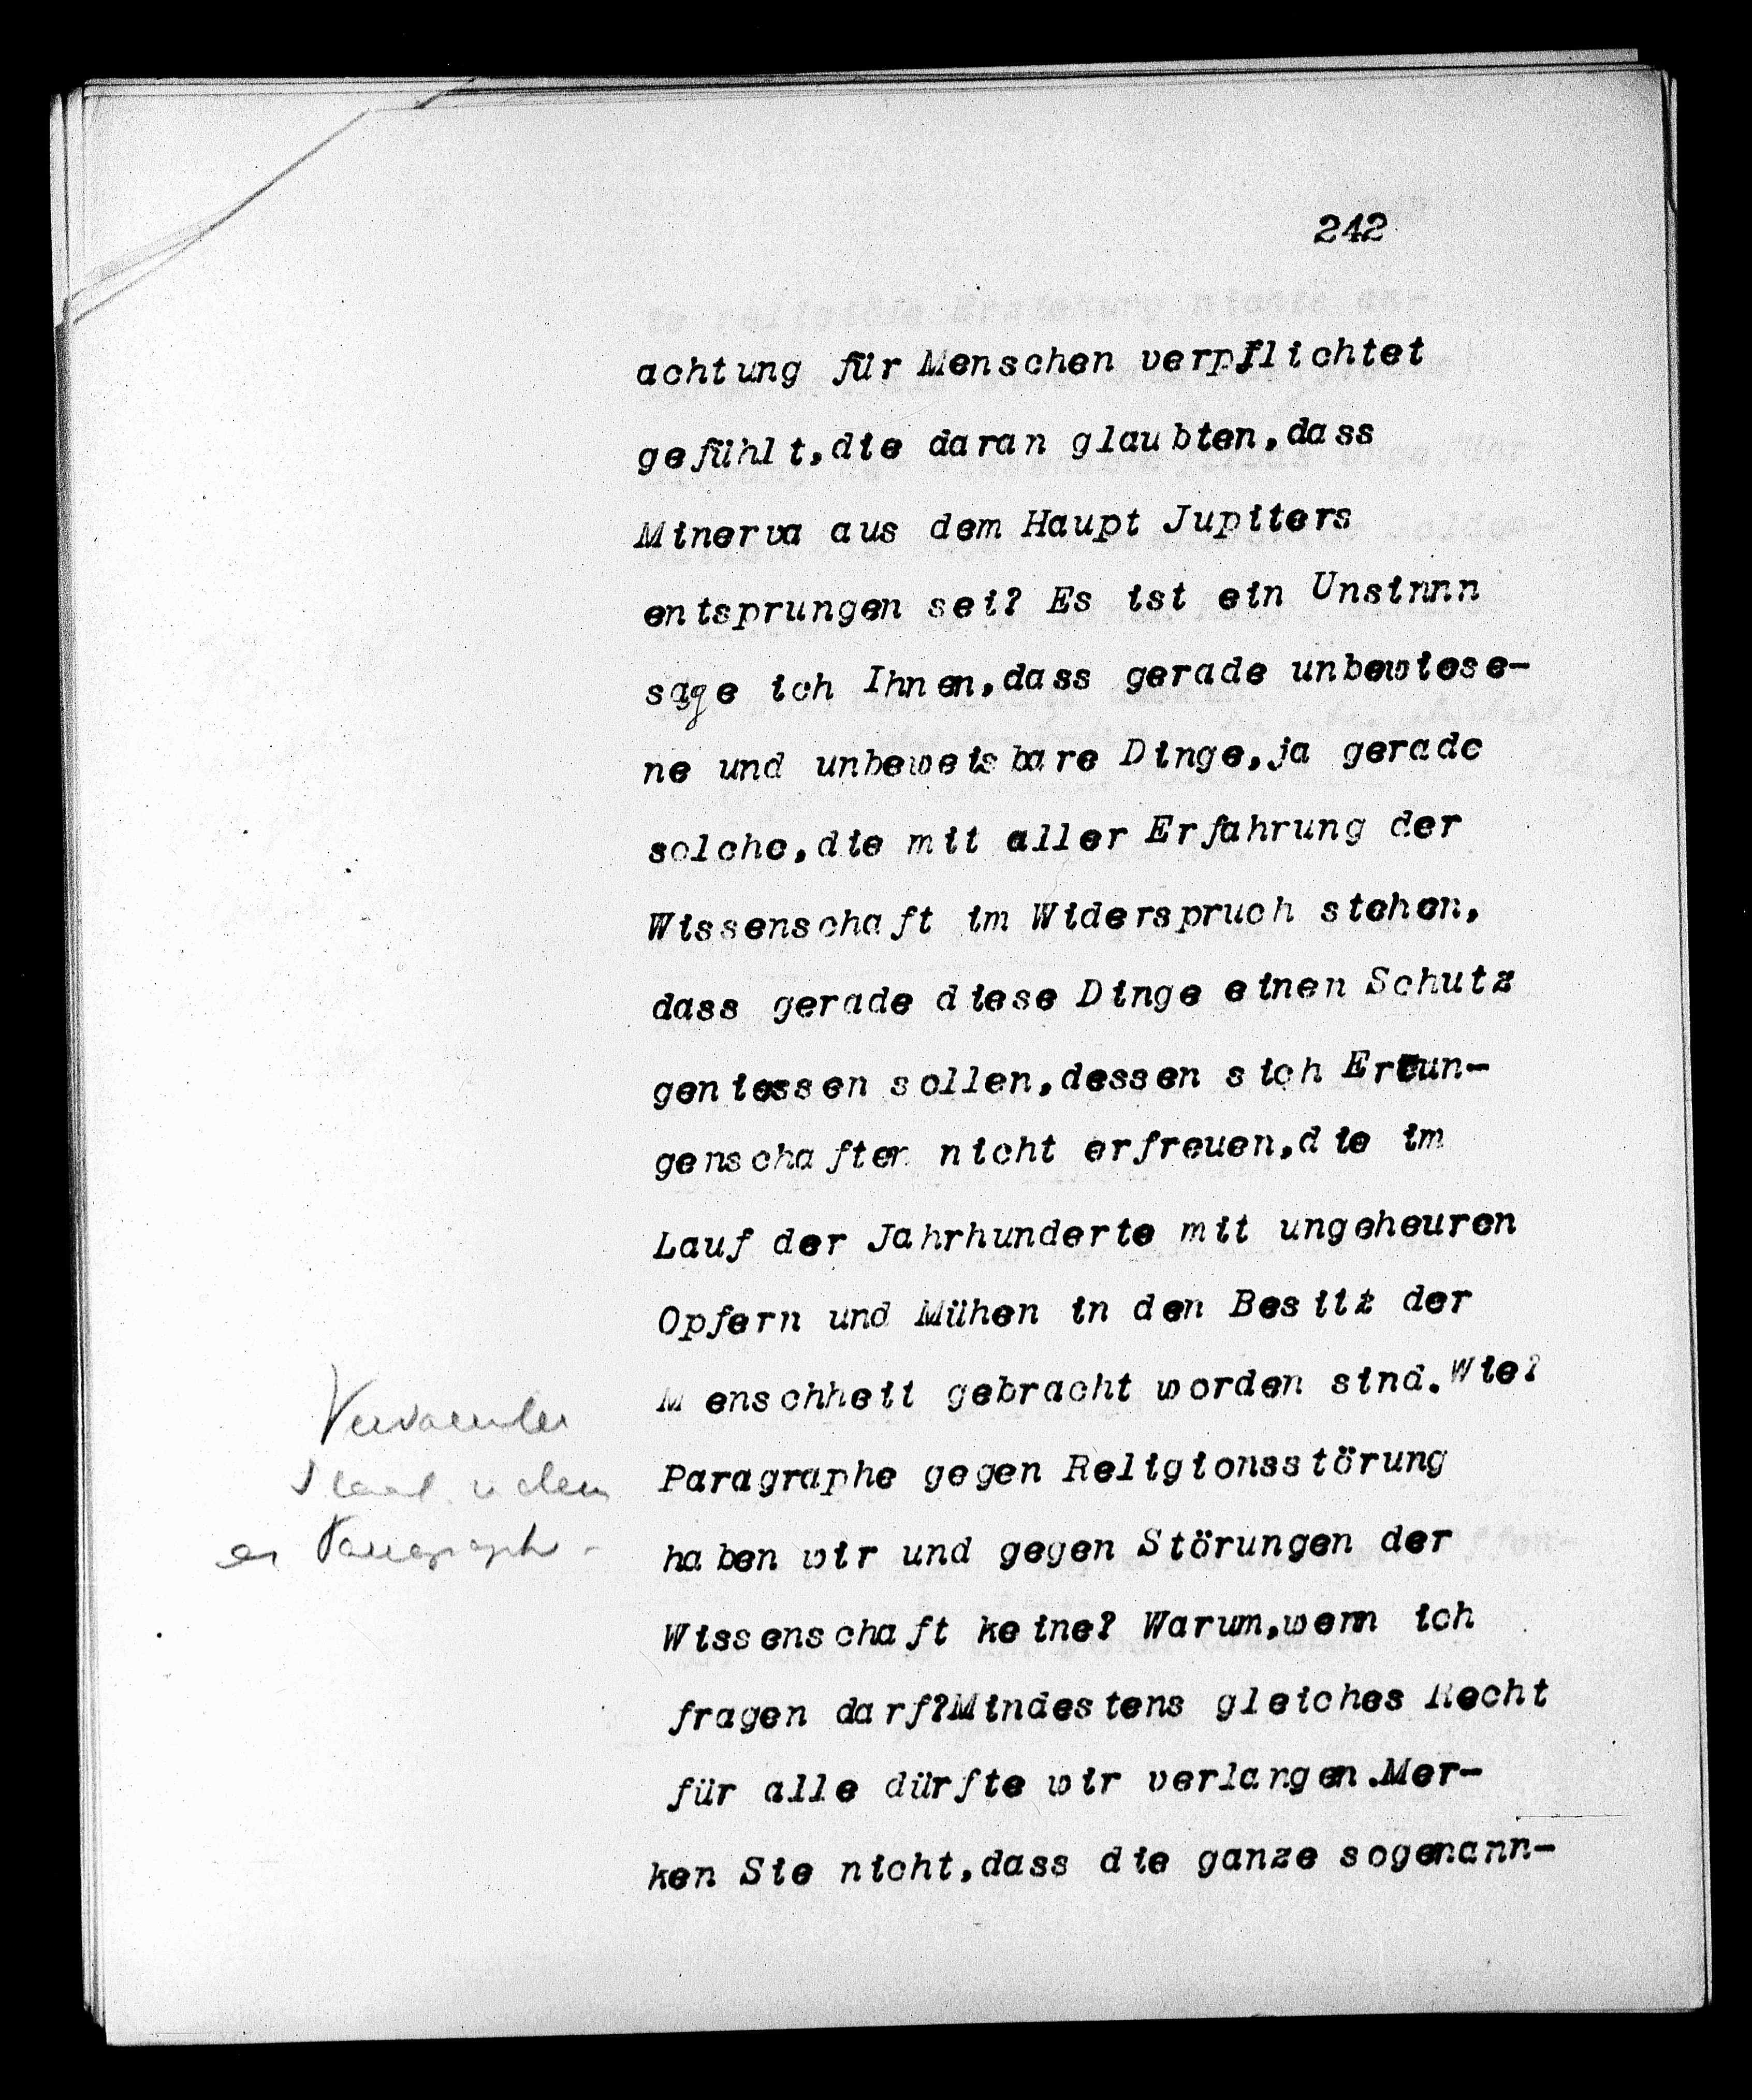 242
achtung für Menschen verpflichtet
gefühlt,die daran glaubten,dass
Minerva aus dem Haupt Jupiters
entsprungen sei? Es ist ein Unsinnn
sage ich Ihnen,dass gerade unbewiese-
ne und unbeweisbare Dinge,ja gerade
solche,die mit aller Erfahrung der
Wissenschaft im Widerspruch stehen,
dass gerade diese Dinge einen Schutz
geniessen sollen,dessen sich Errun-
genschaften nicht erfreuen,die im
Lauf der Jahrhunderte mit ungeheuren
Opfern und Mühen in den Besitz der
Menschheit gebracht worden sind.Wie?
Paragraphe gegen Religionsstörung
haben wir und gegen Störungen der
Wissenschaft keine? Warum,wenn ich
fragen darf?Mindestens gleiches Recht
für alle dürfte wir verlangen.Mer-
ken Sie nicht,dass die ganze sogenann-